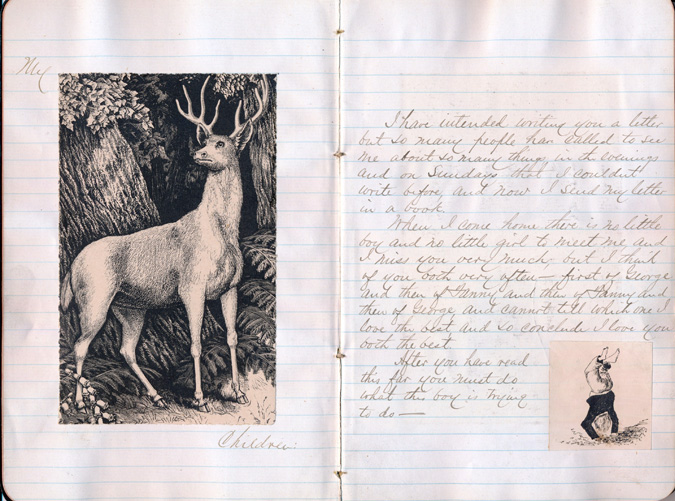 My
Children:
I have intended writing you a letter
but so many people has called to see
me about so many things, in the evenings
and on Sundays that I couldn't
write before, and now I send my letter
in a book.
When I come home there is no little
boy and no little girl to meet me and
I miss you very much, but I think
of you both very often — first of George
and then of Fanny and then of Fanny and
then of George and cannot tell which one I
love the best and so conclude I love you
both the best
After you have read
this far you must do
what this boy is trying
to do —